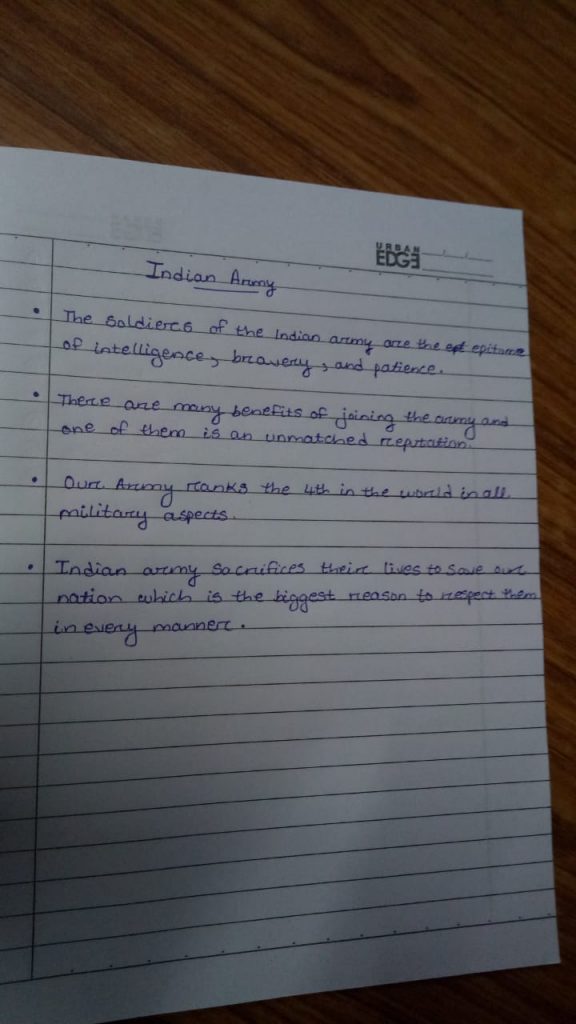 URBAN
EDGE
Indian Army
• The soldiers of the Indian army are the epitome
of intelligence, bravery, and patience.
• There are many benefits of joining the army and
one of them is an unmatched reputation.
• Our Army ranks the 4th in the world in all
military aspects.
• Indian army sacrifices their lives to save our
nation which is the biggest reason to respect them
in every manner.